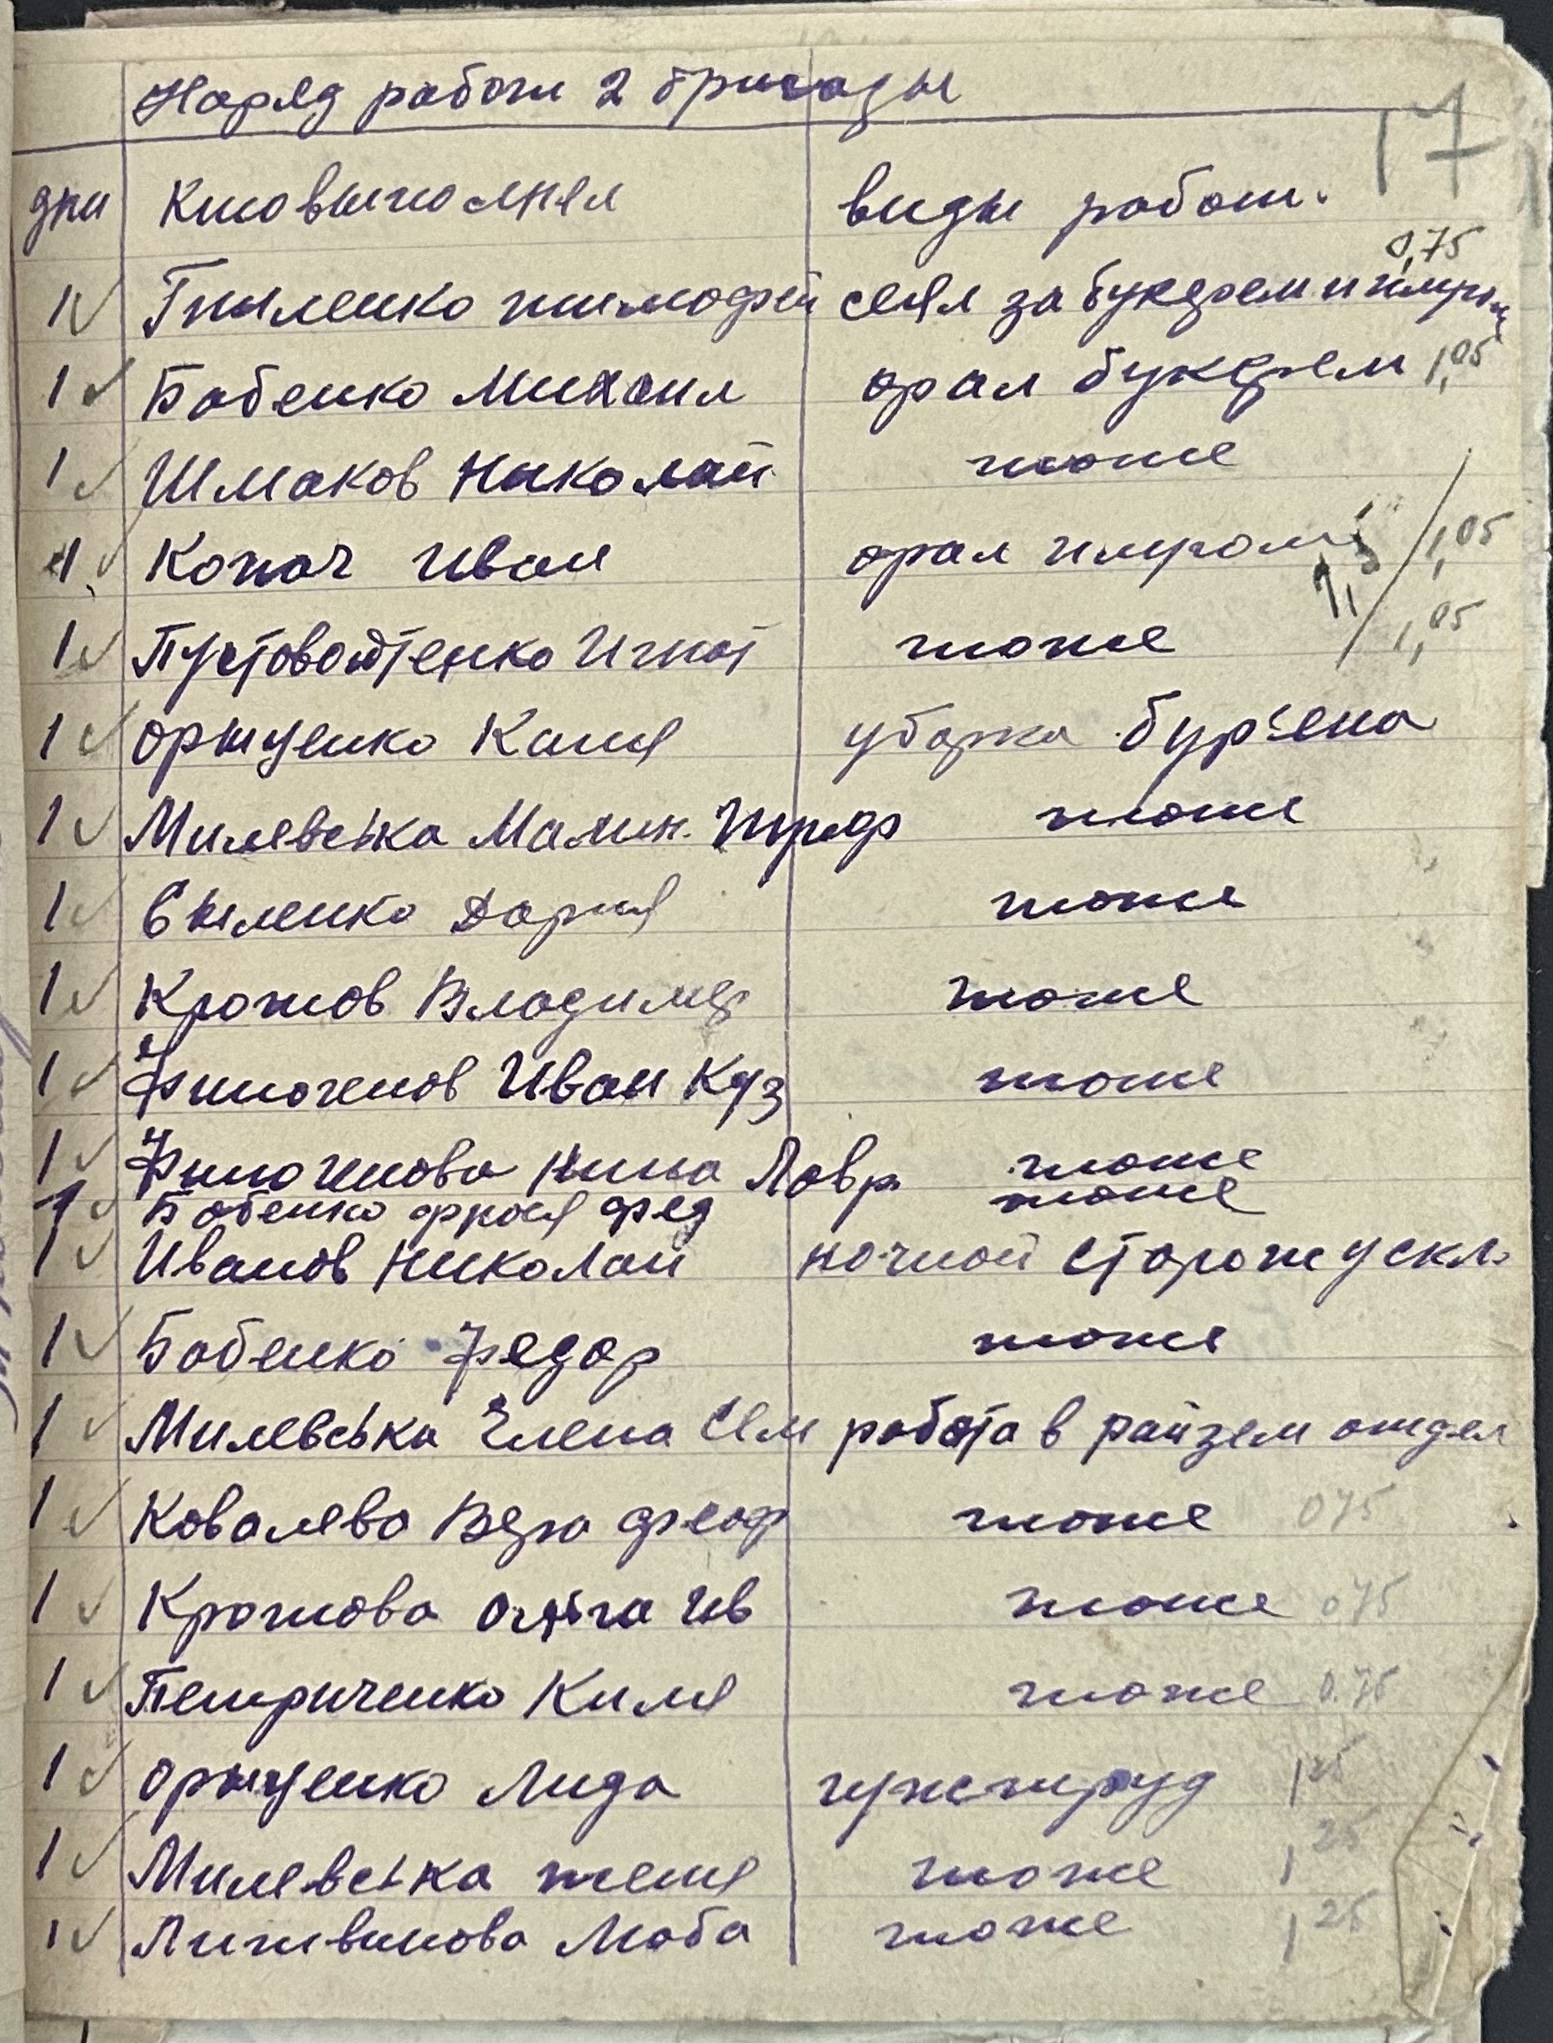 Наряд работи 2 бригады
17
дни Кто выполнял виды работ.
0,75
1 Гныленко тимофей сеял за букером и плугом
1 Бабенко Михаил орал букером 1,05
1 Шмаков Николай тоже
1 Копач Иван орал плугом 1,5 1,05
1 Пустовойтенко Игнат тоже 1,05
1 Орыщенко Катя уборка бур'ена
1 Милевська Малин. Троф тоже
1 Дария тоже
1 Кротов Владимир тоже
1 Филогенов Иван Куз тоже
1 Филогенова Нина Лавр тоже
1 Бабенко фрося фед тоже
1 Иванов Николай ночной сторож у скл.
1 Бабенко Федор тоже
1 Милевська Елена Сем работа в райзем отдел
1 Ковалева Вера феоф тоже 075
1 Кротова Ольга Ив тоже 075
1 Петриченко Киля тоже 0.75
1 Орыщенко Лида гужтруд 1 25
1 Милевська женя тоже 1 25
1 Литвинова Люба тоже 1 25